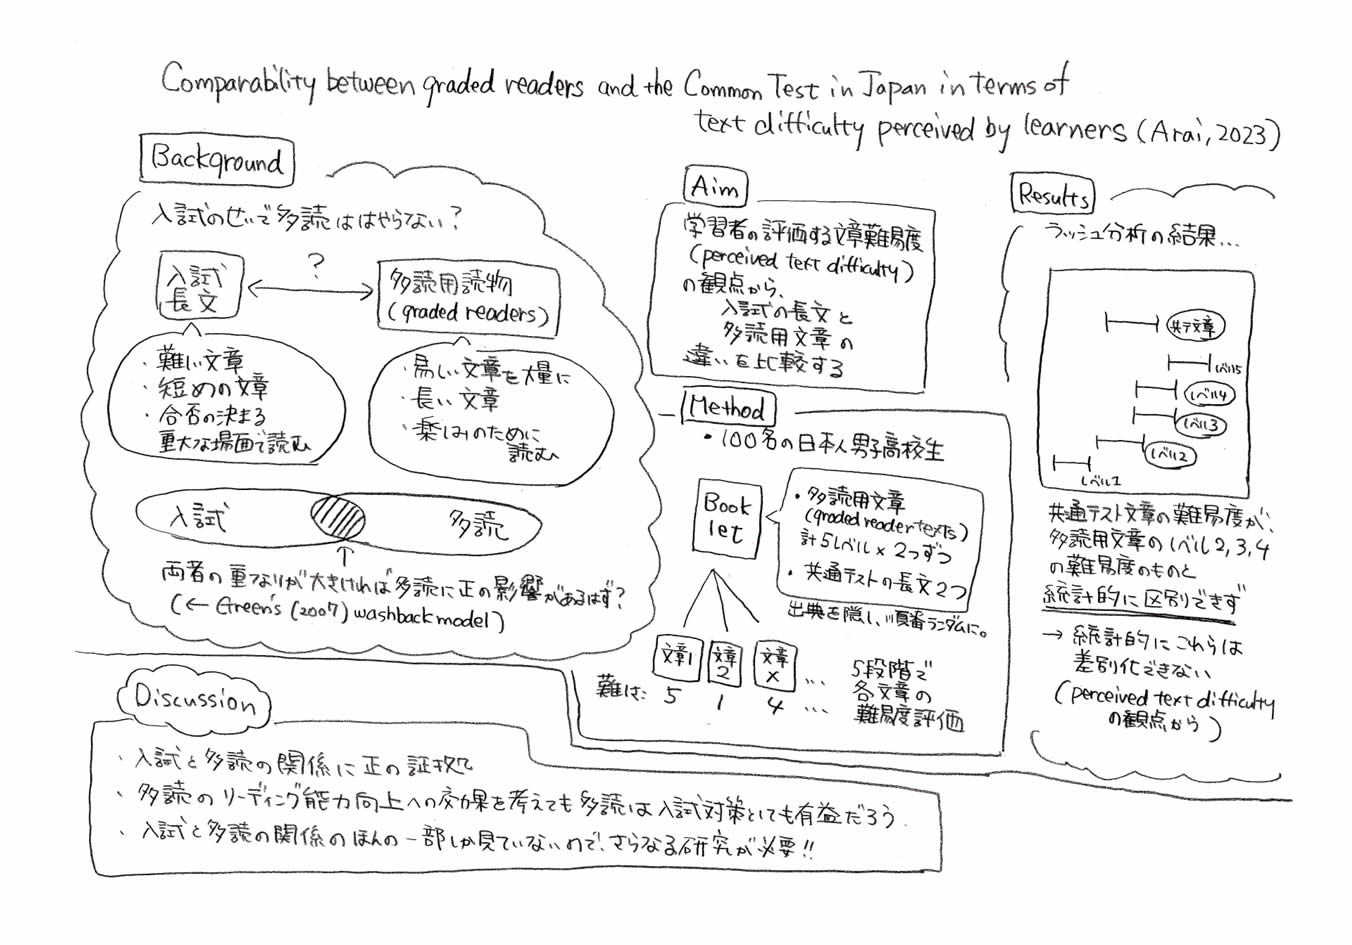 Comparability between graded readers and the Common Test in Japan in terms of
text difficulty perceived by learners (Arai, 2023)
Background
入試のせいで多読ははやらない?
入試
長文
?
多読用読物
(graded readers)
・難しい文章
・短めの文章
・合否の決まる
重大な場面で読む
・易しい文章を大量に
・長い文章
・楽しみのために
読む
入試
多読
↑
両者の重なりが大きければ多読に正の影響があるはず?
(← Green's (2007) washback model)
Aim
学習者の評価する文章難易度
(perceived text difficulty)
の観点から、
入試の長文と
多読用文章の
違いを比較する
Method
・100名の日本人男子高校生
Book
let
・多読用文章
(graded reader texts)
計5レベル×2つずつ
・共通テストの長文2つ
出典を隠し、順番ランダムに。
文章1
文章
2
文章
X
...
難は:
5
1
4
...
5段階で
各文章の
難易度評価
Results
ラッシュ分析の結果...
共テ文章
レベル5
レベル4
レベル3
レベル2
レベル1
共通テスト文章の難易度が、
多読用文章のレベル2,3,4
の難易度のものと
統計的に区別できず
→ 統計的にこれらは
差別化できない
(perceived text difficulty
の観点から)
Discussion
・入試と多読の関係に正の証拠
・多読のリーディング能力向上への効果を考えても多読は入試対策としても有益だろう.
・入試と多読の関係のほんの一部しか見ていないので、さらなる研究が必要!!